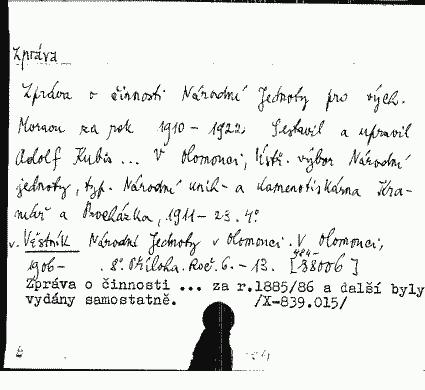 Zpráva
Zpráva o činnosti Národní Jednoty pro vých.
Moravu za rok 1910 - 1922. Sestavil a upravil
Adolf Kubis ... V Olomouci, Ústř. výbor Národní
jednoty, typ. Národní knih- a kamenotiskárna Kra-
mář a Procházka, 1911 - 23. 4°.
v. Věstník Národní Jednoty v Olomouci. V Olomouci,
1906- . 8°. Příloha. Roč. 6. - 13. [38006]
Zpráva o činnosti ... za r.1885/86 a další byly
vydány samostatně. /X-839.015/